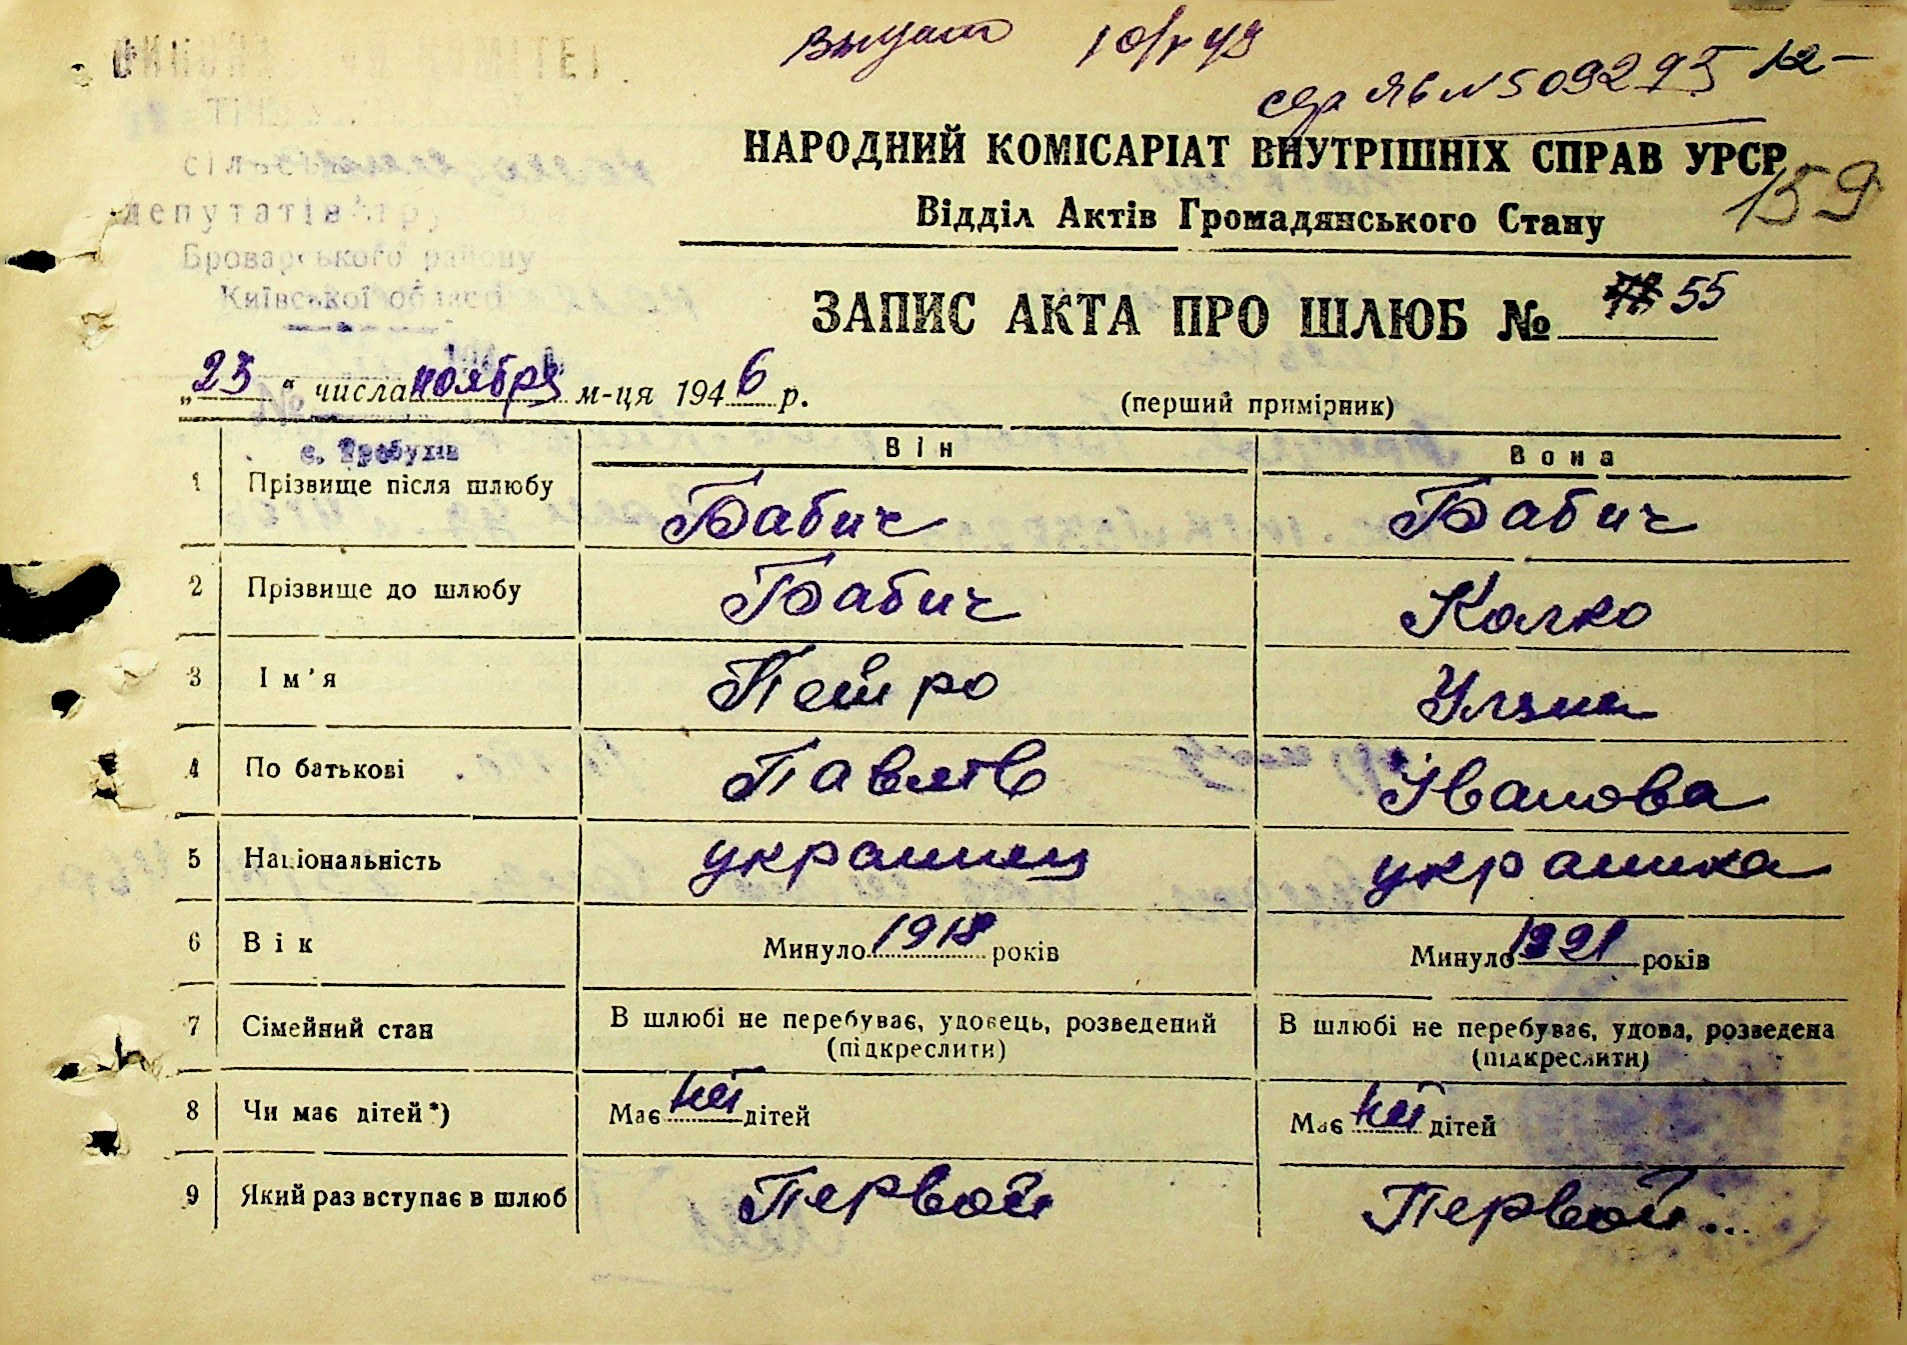 10/V 49
509295 12-
НАРОДНИЙ КОМІСАРІАТ ВНУТРІШНІХ СПРАВ УРСР
159
Відділ Актів Громадянського Стану
депутатів тру
Броварського району
Київської області
ЗАПИС АКТА ПРО ШЛЮБ № 55
„23“ числа ноября м-ця 1946 р.
(перший примірник)
с. Требухів
Він Вона
1 Прізвище після шлюбу Бабич Бабич
2 Прізвище до шлюбу Бабич Калко
3 Ім'я Петро Уляна
4 По батькові Павлов Іванова
5 Національність украинец украинка
6 Вік Минуло 1918 років Минуло 1921 років
7 Сімейний стан В шлюбі не перебуває, удовець, розведений В шлюбі не перебуває, удова, розведена
(підкреслити) (підкреслити)
8 Чи має дітей*) Має нет дітей Має нет дітей
9 Який раз вступає в шлюб Первой Первой...